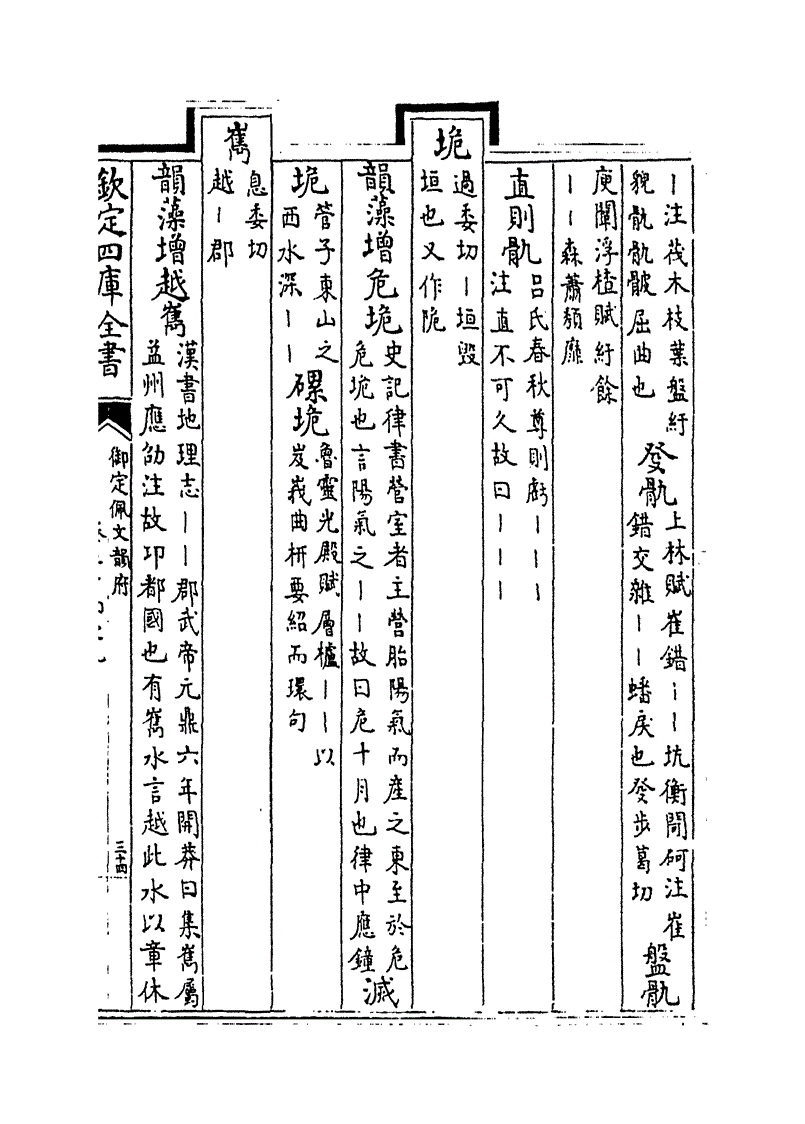 丨注茷木枝葉盤紆
貌骩骩骳屈曲也
發骩
上林賦崔錯丨丨坑衡閜砢注崔
錯交雜丨丨蟠戾也發步葛切
盤骩
庾闡浮楂賦紆餘
丨丨森蕭頽靡
直則骩
吕氏春秋尊則虧丨丨丨
注直不可久故曰丨丨丨
垝
過委切丨垣毁
垣也又作陒
韻藻增危垝
史記律書營室者主營胎陽氣而産之東至於危
危垝也言陽氣之丨丨故曰危十月也律中應鐘
滅
垝
管子東山之
西水深丨丨
磥垝
魯靈光殿賦層櫨丨丨以
岌峩曲枅要紹而環句
嶲
息委切
越丨郡
韻藻增越嶲
漢書地理志丨丨郡武帝元鼎六年開莽曰集嶲屬
益州應劭注故邛都國也有嶲水言越此水以章休
欽定四庫全書
御定佩文韻府
三十四